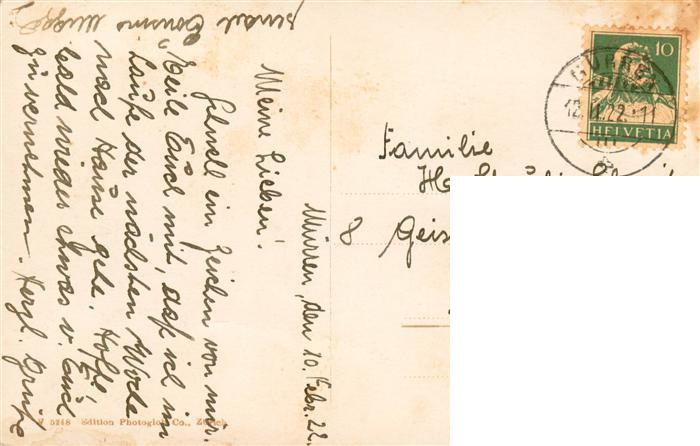 Mürren, den 10. Febr. 22.
Meine Lieben!
Schnell ein Zeichen von mir.
Teile Euch mit, daß ich im
Laufe der nächsten Woche
nach Hause gehe. Hoffe
bald wieder etwas v. Euch
zu vernehmen. Herzl. Grüße
sendet
Familie
8 Geis
10
HELVETIA
5248 Edition Photoglob Co., Zürich